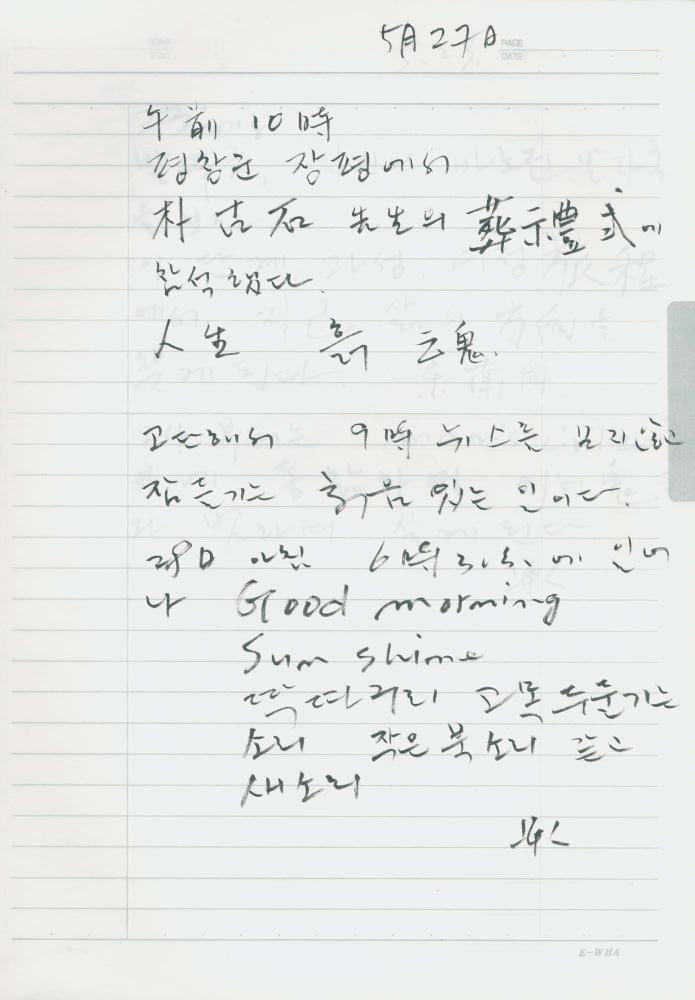 5月27日
PAGE
DATE
午前 10時
평창군 장평에서
朴古石 先生의 葬禮式에
참석했다.
人生 흙 云鬼.
고단해서 9時 뉴스를 보지 않고
잠들기는 처음 있는 일이다.
28日 아침 6時 3.5.에 일어
나 Good morning
Sum shime
딱따구리 고목 두둘기는
소리 작은 북소리 같고
새소리
E-WHA